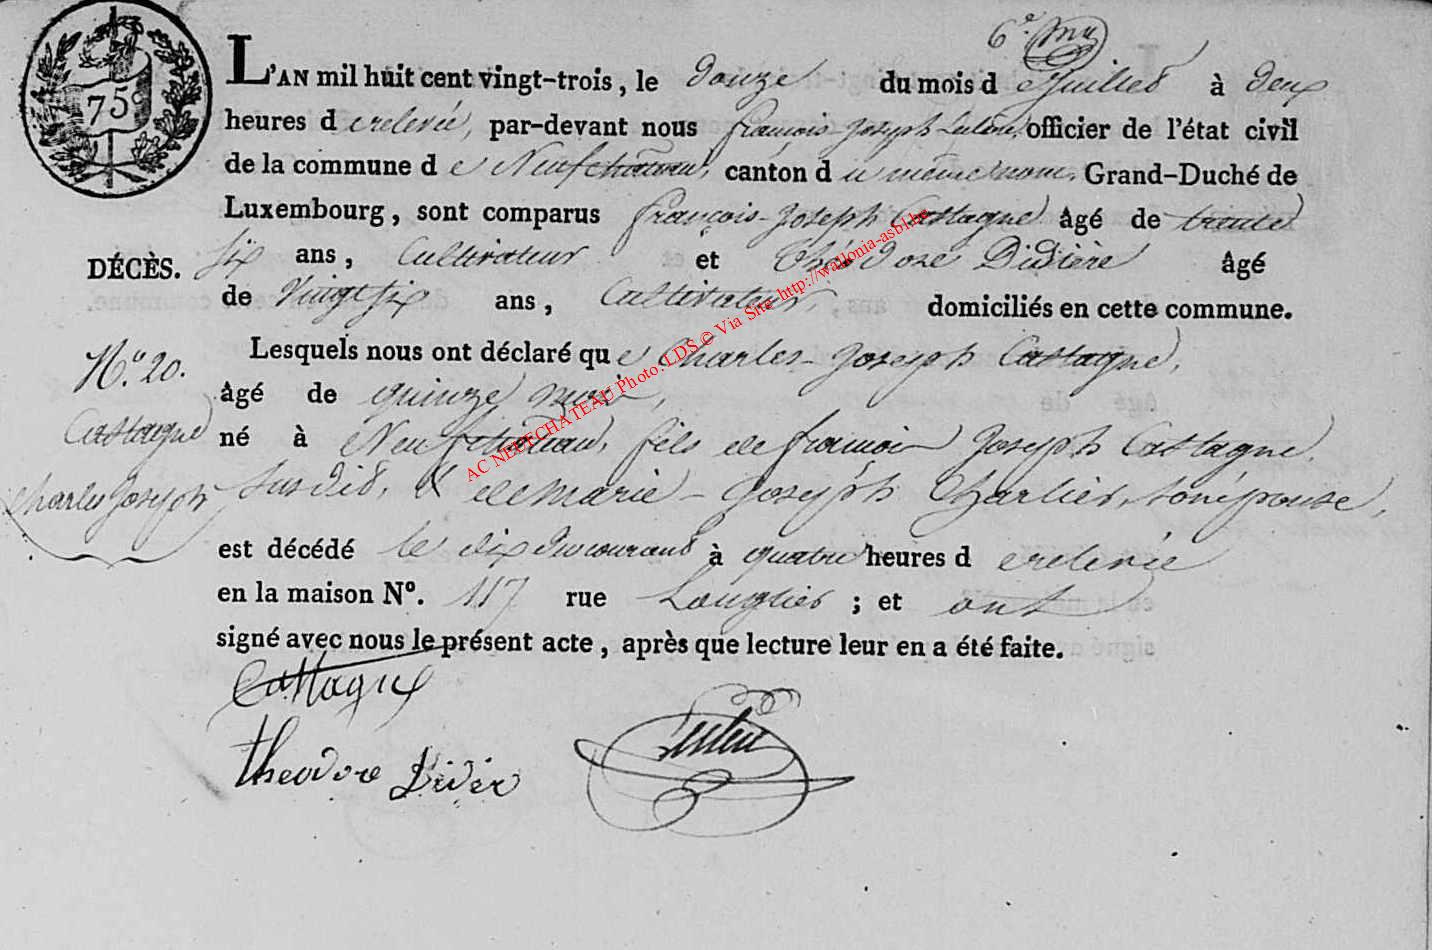 6e.
75
L'AN mil huit cent vingt-trois, le douze du mois d e Juillet à deux
heures d e relevée, par-devant nous françois-Joseph officier de l'état civil
de la commune d e Neufchateau, canton d u même nom, Grand-Duché de
Luxembourg, sont comparus françois-Joseph Castagne âgé de trente
DÉCÈS.
six ans, Cultivateur et Théodore Didière âgé
de Vingt six ans, Cultivateur, domiciliés en cette commune.
Lesquels nous ont déclaré qu e Charles-Joseph Castagne,
N.º 20.
âgé de quinze mois,
Castagne
né à Neufchateau, fils de françois Joseph Castagne
Charles Joseph
susdit, & de Marie-Joseph Charlier, son épouse,
est décédé le dix du courant à quatre heures d e relevée
en la maison Nº. 117 rue Longlier ; et ont
signé avec nous le présent acte, après que lecture leur en a été faite.
Castagne
theodore Didier
AC NEUFCHATEAU Photo. LDS © Via Site http://wallonia-asbl.be